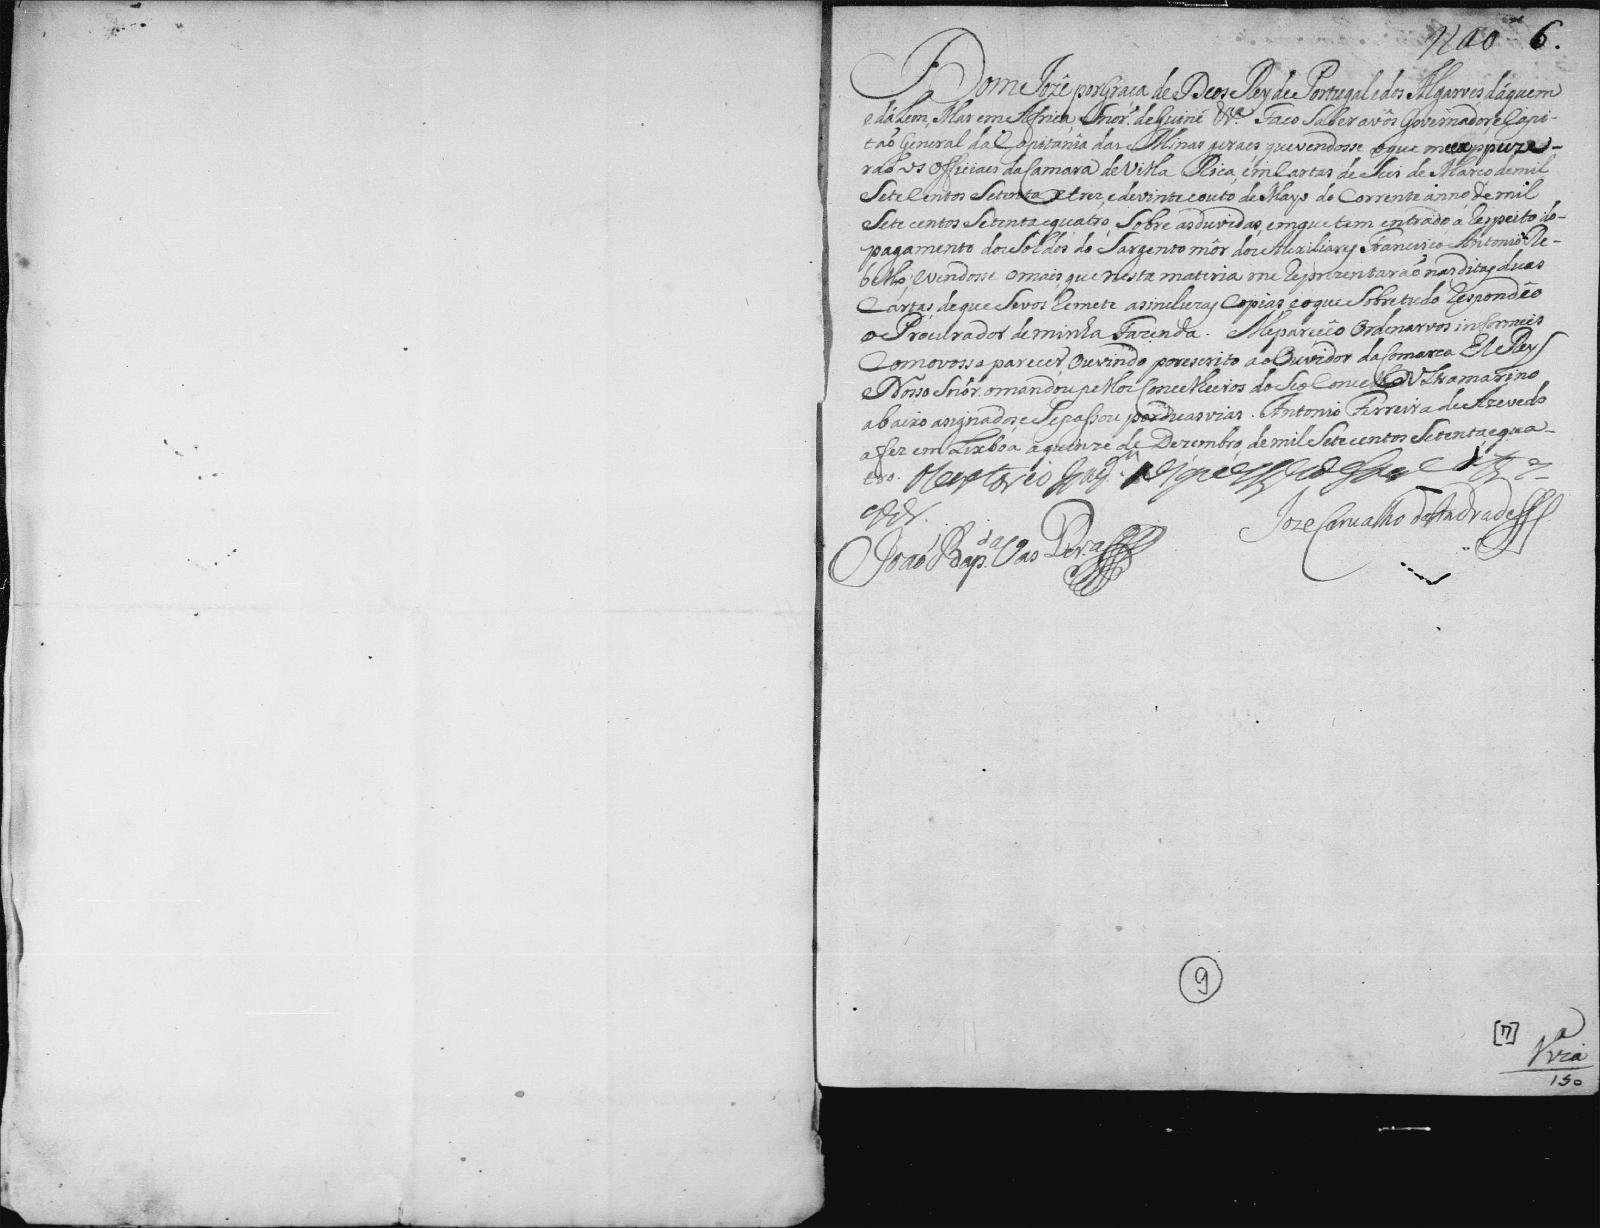 Não 6.
Dom Joze por Graça de Deos Rey de Portugal e dos Algarves dáquem
e dálem, Mar em Africa Snór. de Guiné &ª. Faço saber avós Governador, e Capi-
taó General da Capitánia das Minas geraes que vendosse o que me expuze-
raó os Officiaes da Camara de Villa Rica, em Cartas de Seis de Marco de mil
Sete Centos Setenta e trez, e de vinte e outo de Mayo do Corrente anno de mil
Sete centos Setenta e quatro, Sobre as duvidas, em que tem entrado a Respeito do-
pagamento dos Soldos do Sargento môr dos Auxiliares Francisco Antonio Re-
bello, Vendosse o mais, que nesta materia me Reprezentaraó nas ditas duas
Cartas, de que Sevos Remete as incluzas Copias, e o que Sobre tudo Respondêo
o Procurador de minha Fazenda. Mepareceo Ordenarvos informeis
Com o vosso parecer, Ouvindo por escrito ao Ouvidor da Comarca El Rey
Nosso Snór. o mandou pellos Concelheiros do Seo Concelho Ultramarino
abaixo asignados, e Sepassou por duas vias. Antonio Ferreira de Azevedo
a fez em Lixboa a quinze de Dezembro de mil Sete centos Setenta e qua-
tro.
Joze Carvalho de Andrade
Joaó Bap.ta Vas Per.a
9
[7]
1ª via
150